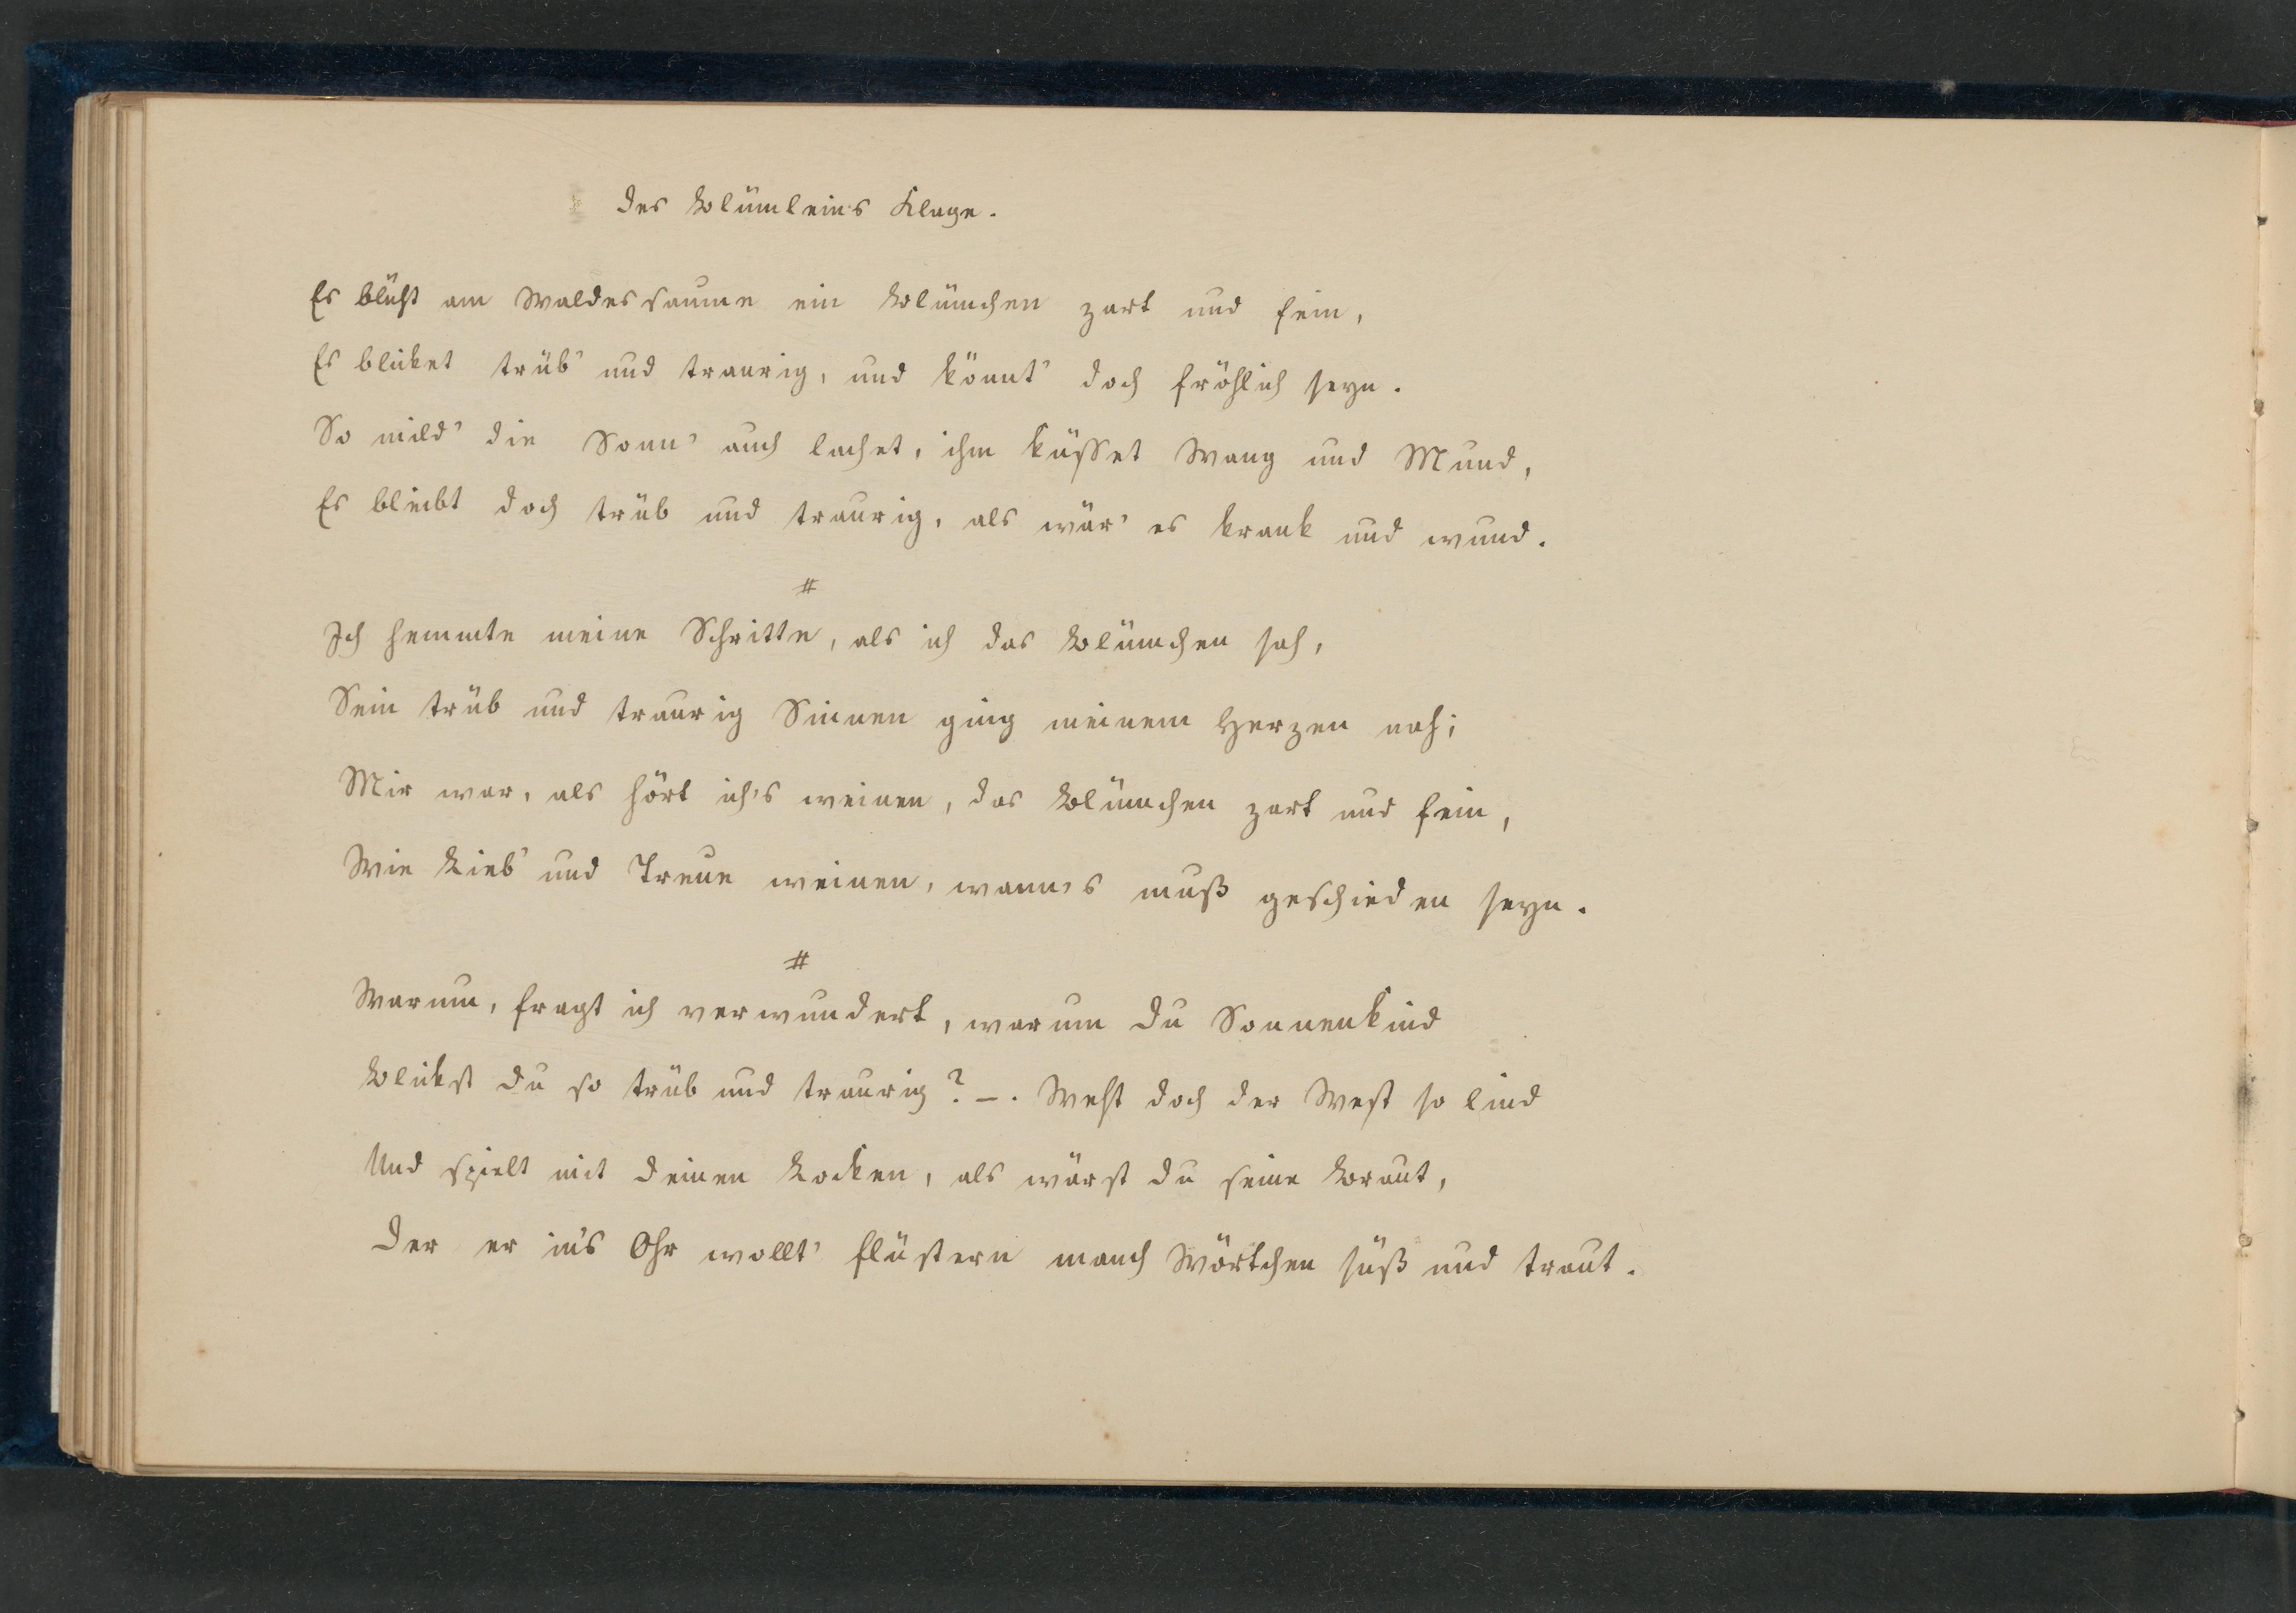 Des Blümleins Klage.
Es blüht am Waldessaume ein Blümchen zart und fein,
Es blicket trüb' und traurig, und könnt' doch fröhlich seyn.
So mild' die Sonn' auch lachet, ihm küsset Wang und Mund,
Es bleibt doch trüb und traurig, als wär' es krank und wund.
#
Ich hemmte meine Schritte, als ich das Blümchen sah,
Sein trüb und traurig Sinnen ging meinem Herzen nah;
Mir war, als hört ich's weinen, das Blümchen zart und fein,
Wie Lieb' und Treue weinen, wann's muß geschieden seyn.
#
Warum, fragt ich verwundert, warum du Sonnenkind
Blickst du so trüb und traurig? –. Weht doch der West so lind
Und spielt mit deinen Locken, als wärst du seine Braut,
Der er in's Ohr wollt' flüstern manch Wörtchen süß und traut.